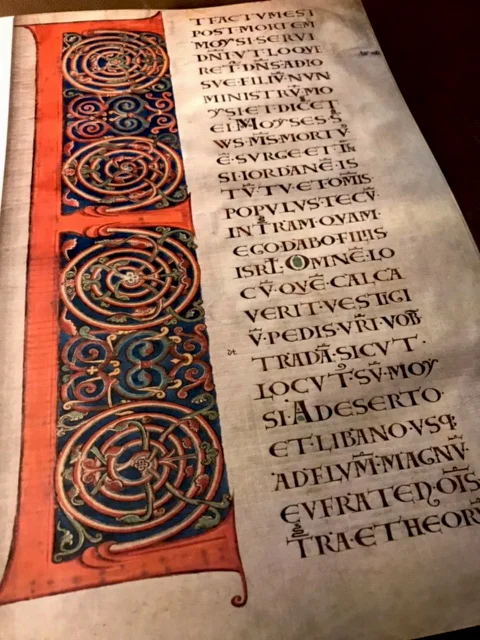 TFACTVMEST
POST MORTEM
MOYSI SERVI
DÑI VT LOQVE
RET̄ DÑS ADIO
SVE FILIV̄ NVN
MINISTRV̄ MO
YSI ET DICET
EI MOYSES S
WS M̄S MORTV̄
Ē SVRGE ET
SI IORDANĒ IS
TV̄ TV ET OM̄IS
POPVLVS TECV̄
IN TRAM QVAM
EGO DABO FILIIS
ISRL̄ OMNĒ LO
CV̄ QVĒ CALCA
VERIT VESTIGI
V̄ PEDIS VR̄I VOB̄
TRADĀ SICVT
LOCVT SV̄ MOY
SI A DESERTO
ET LIBANO VSQ
AD FLVM̄ MAGNV̄
EVFRATEN OM̄IS
TRA ETHEORV